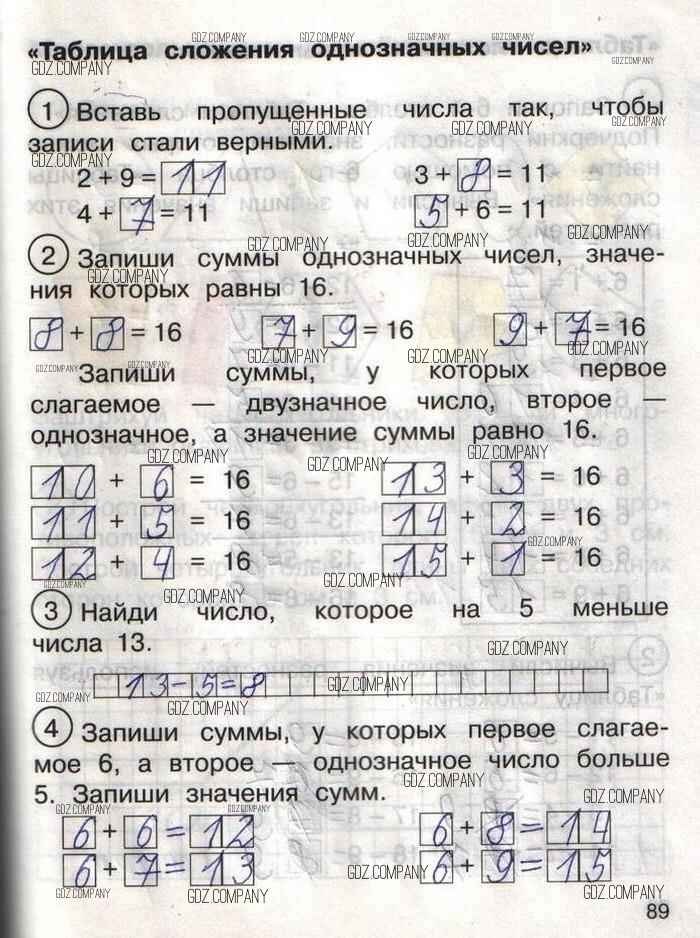 «Таблица сложения однозначных чисел»
1 Вставь пропущенные числа так, чтобы
записи стали верными.
2 + 9 = 11 3 + 8 = 11
4 + 7 = 11 5 + 6 = 11
2 Запиши суммы однозначных чисел, значе-
ния которых равны 16.
8 + 8 = 16 7 + 9 = 16 9 + 7 = 16
Запиши суммы, у которых первое
слагаемое — двузначное число, второе —
однозначное, а значение суммы равно 16.
10 + 6 = 16 13 + 3 = 16
11 + 5 = 16 14 + 2 = 16
12 + 4 = 16 15 + 1 = 16
3 Найди число, которое на 5 меньше
числа 13.
13-5=8
4 Запиши суммы, у которых первое слагае-
мое 6, а второе — однозначное число больше
5. Запиши значения сумм.
6 + 6 = 12 6 + 8 = 14
6 + 7 = 13 6 + 9 = 15
89
GDZ.COMPANY